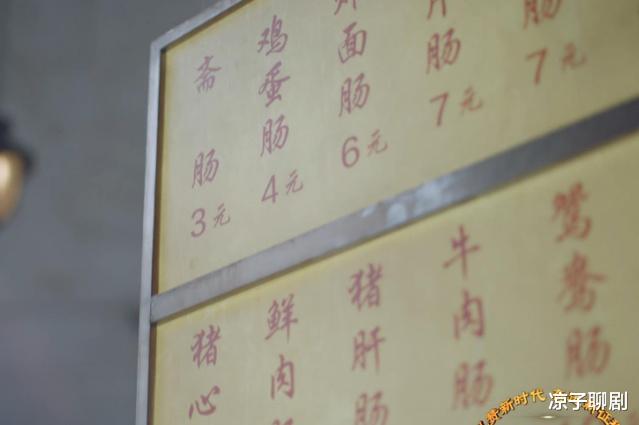 斋肠
3元
鸡蛋肠
4元
面肠
6元
肠
7元
肠
7元
猪心
鲜肉
猪肝肠
牛肉肠
鸳鸯肠
赞新时代
凉子聊剧